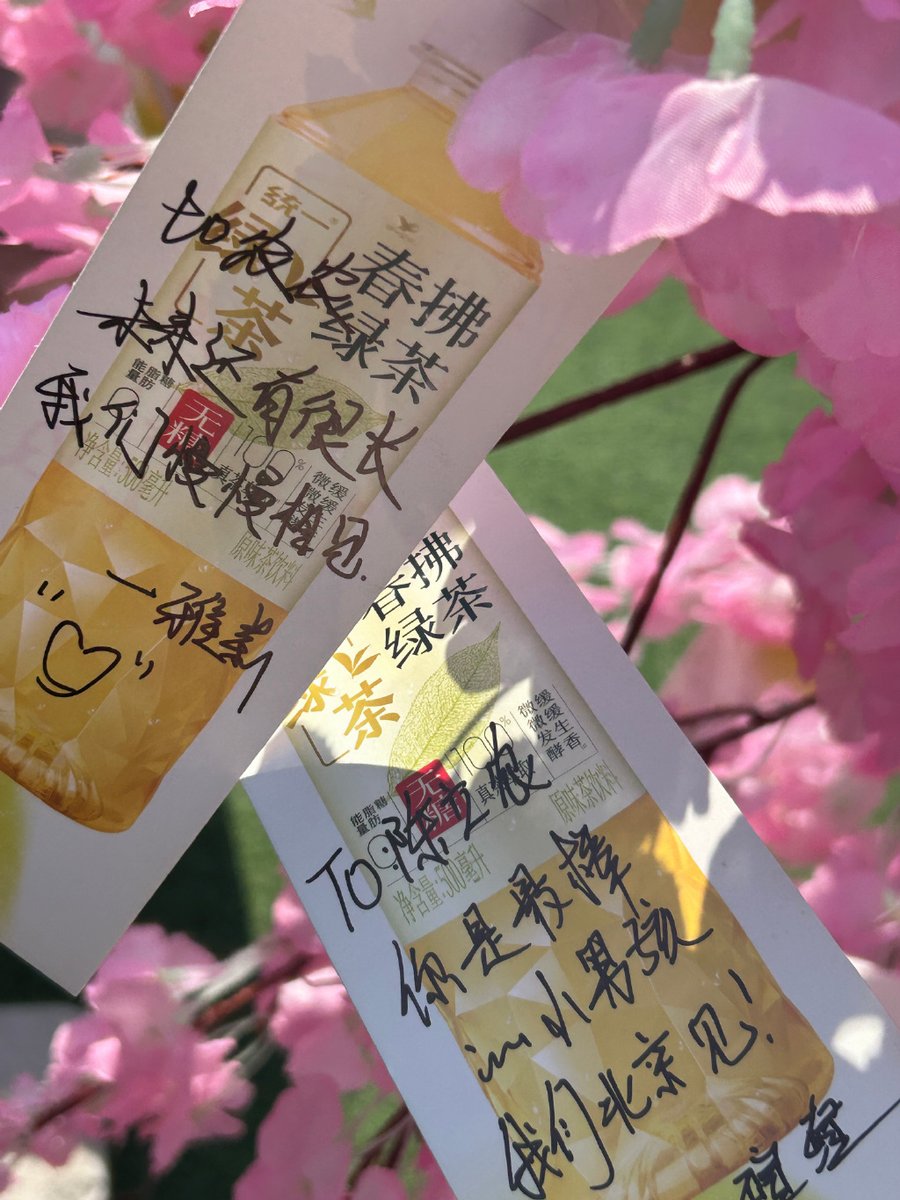 统一
绿
茶
春拂
绿茶
能脂糖
量肪
无糖
100%
微缓
微缓
净含量:500毫升
原味茶饮料
to农农
未来还有很长
我们慢慢相见.
春拂
绿茶
茶
100%
微缓
微缓
发生
酵香
能脂糖
量肪
0
无糖
净含量:500毫升
原味茶饮料
TO 陈立农
你是最棒
小男孩
我们北京见!